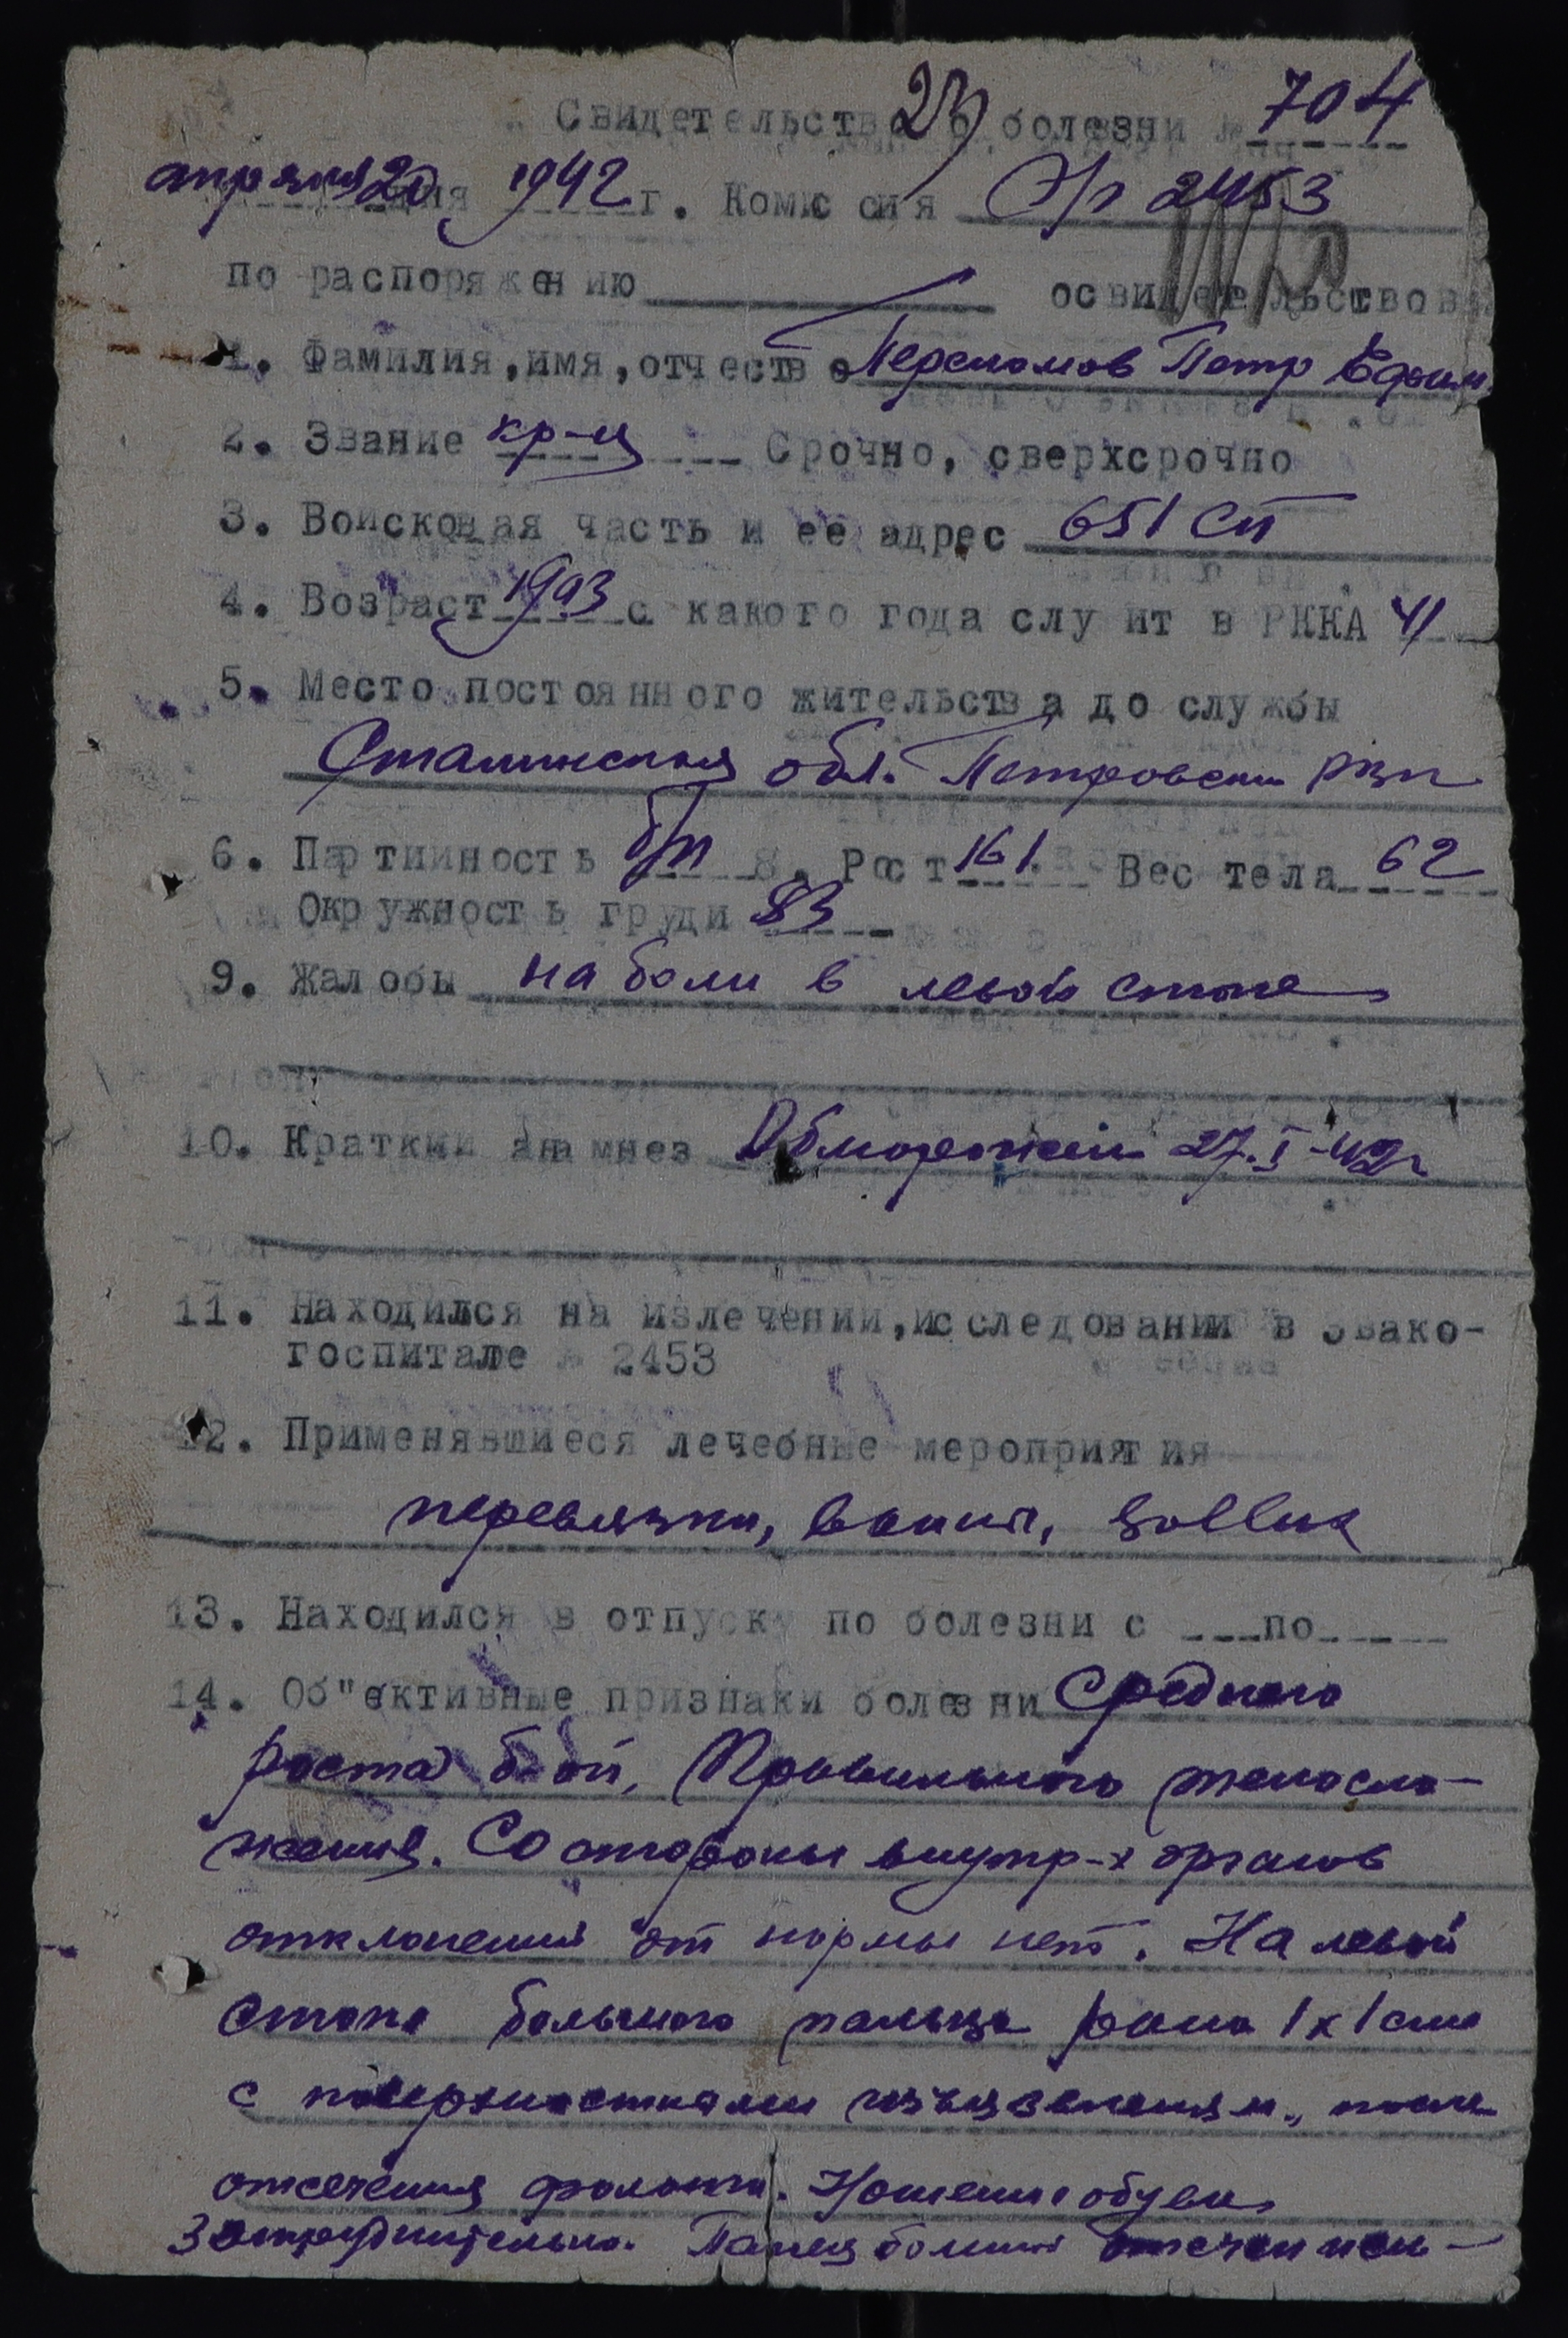 Свидетельство о болезни № 704
23
апреля 20 дня 1942 г. Комиссия Э/г 2453
по распоряжению освидетельствов
1. Фамилия, имя, отчество Петр Ефим.
2. Звание кр-ц Срочно, сверхсрочно
3. Войсковая часть и ее адрес 651 сп
4. Возраст 1903 с какого года служит в РККА 41
5. Место постоянного жительства до службы
Сталинская обл. Петровский
6. Партийность б/п 8. Рост 161 Вес тела 62
Окружность груди 83
9. Жалобы на боли в левой стопе
10. Краткий анамнез Обморожение 27.I-42г
11. Находился на излечении, исследовании в Эвако-
госпитале № 2453
12. Применявшиеся лечебные мероприятия
перевязки, ванны, Sollux
13. Находился в отпуску по болезни с ___ по ____
14. Об"ективные признаки болезни Среднего
роста б-ой, Правильного телосло-
жения. Со стороны внутр-х органов
отклонения от нормы нет. На левой
стопе большого пальца рана 1х1 см
с поверхностными изъязвлениям., после
отсечения фаланги. Ношение обуви
затруднительно. Палец